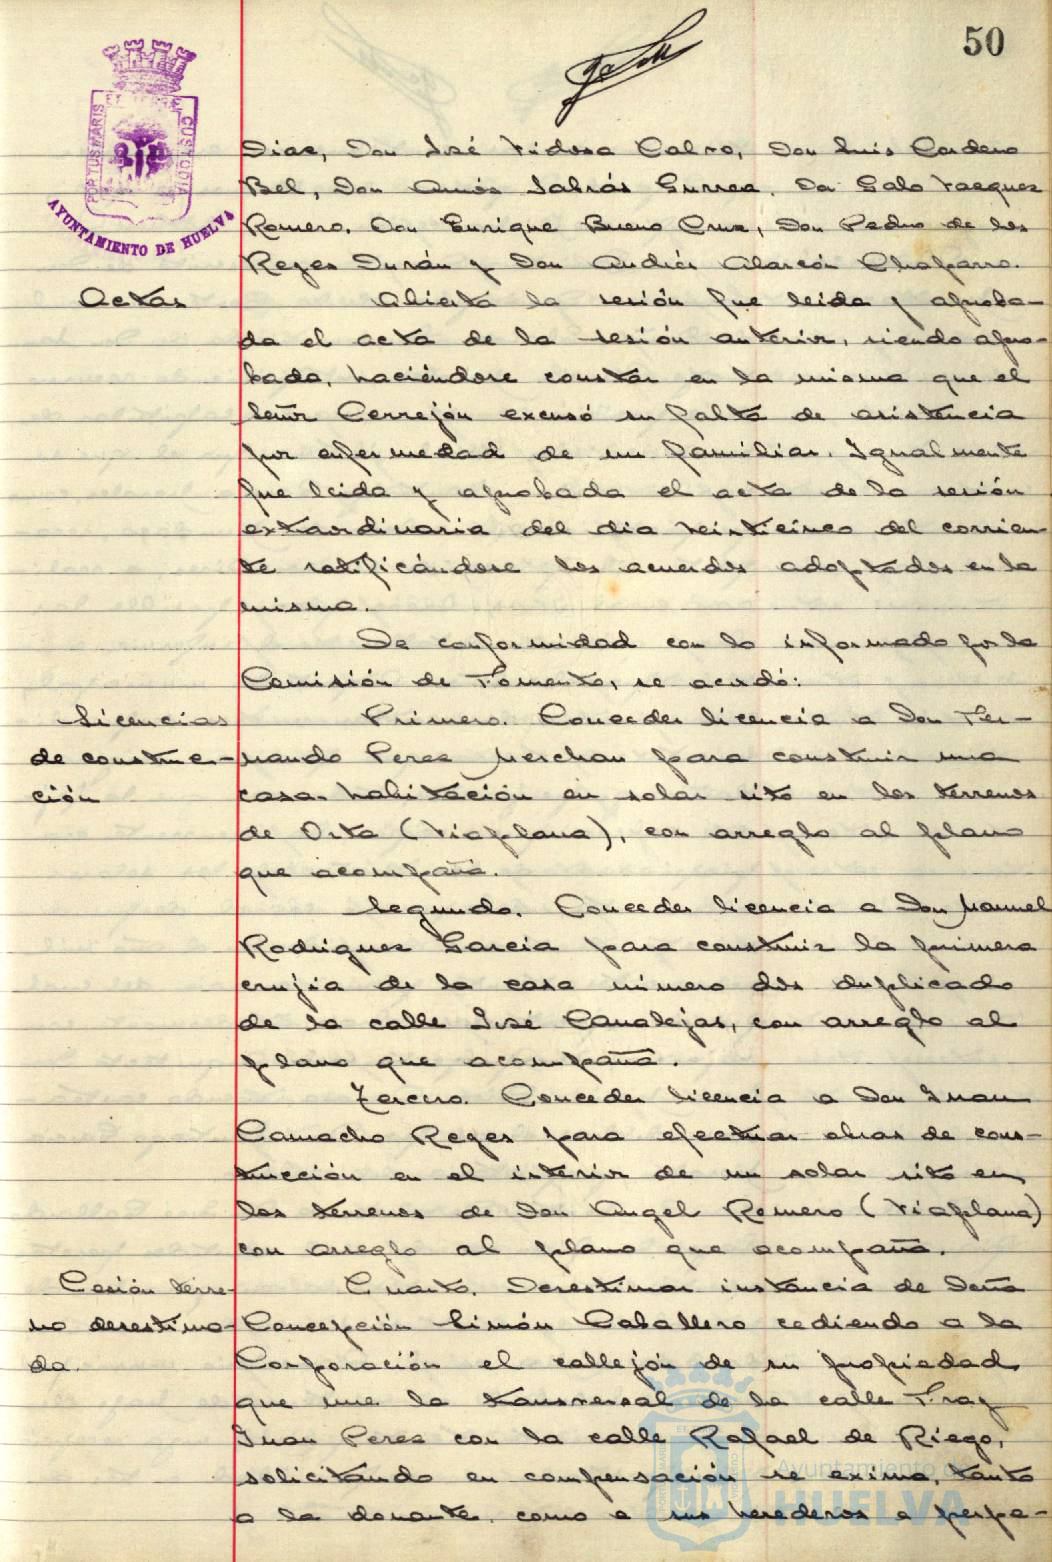 50
PORTUS MARIS ET TERRE CUSTODIA
AYUNTAMIENTO DE HUELVA
Diaz, Don José Vidosa Calvo, Don Luis Cordero
Bel, Don Amós Sabrás Gurrea, Don Galo Vazquez
Romero, Don Enrique Bueno Cruz, Don Pedro de los
Reyes Durán y Don Andrés Alarcón Chaparro.
Actas
Abierta la sesión fue leida y aproba-
da el acta de la sesión anterior, siendo apro-
bada, haciéndose constar en la misma que el
señor Cerrejón excusó su falta de asistencia
por enfermedad de un familiar. Igualmente
fue leida y aprobada el acta de la sesión
extraordinaria del dia veinticinco del corrien-
te ratificándose los acuerdos adoptados en la
misma.
De conformidad con lo informado por la
Comisión de Fomento, se acordó:
Licencias
de construc-
ción
Primero. Conceder licencia a Don Fer-
nando Perez Merchan para construir una
casa-habitación en solar sito en los terrenos
de Orta (Viaplana), con arreglo al plano
que acompaña.
Segundo. Conceder licencia a Don Manuel
Rodriguez Garcia para construir la primera
crujia de la casa número dos duplicado
de la calle José Canalejas, con arreglo al
plano que acompaña.
Tercero. Conceder licencia a Don Juan
Camacho Reyes para efectuar obras de cons-
trucción en el interior de un solar sito en
los terrenos de Don Angel Romero (Viaplana)
con arreglo al plano que acompaña.
Cesión terre-
no desestima-
da.
Cuarto. Desestimar instancia de Doña
Concepción Limón Caballero cediendo a la
Corporación el callejón de su propiedad
que une la transversal de la calle Fray
Juan Perez con la calle Rafael de Riego,
solicitando en compensación se exima, tanto
a la donante, como a sus herederos a perpe-
Ayuntamiento de
HUELVA